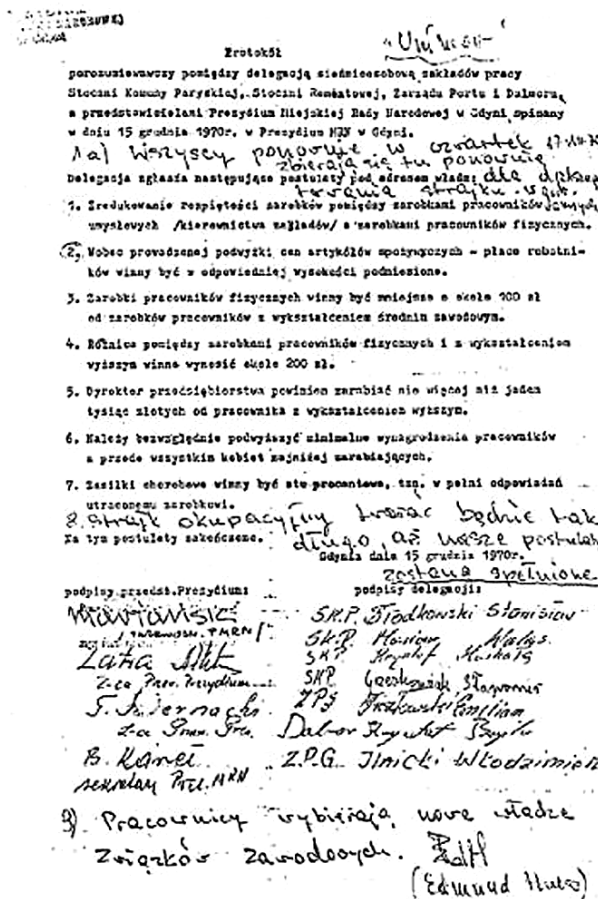 "Uniwer"
Protokół
porozumiewawczy pomiędzy delegacją siedmioosobową zakładów pracy
Stoczni Komuny Paryskiej, Stoczni Remontowej, Zarządu Portu i Dalmoru,
a przedstawicielami Prezydium Miejskiej Rady Narodowej w Gdyni spisany
w dniu 15 grudnia 1970r. w Prezydium MRN w Gdyni.
1a) Wszyscy ponownie w czwartek 17.12.70
zbierają się tu ponownie
Delegacja zgłasza następujące postulaty pod adresem władz: dla dalszego
trwania strajku
1. Zredukowanie rozpiętości zarobków pomiędzy zarobkami pracowników
umysłowych /kierownictwa zakładów/ a zarobkami pracowników fizycznych.
2. Wobec prowadzonej podwyżki cen artykółów spożywczych - płace robotni-
ków winny być w odpowiedniej wysokości podniesione.
3. Zarobki pracowników fizycznych winny być mniejsze o około 200 zł
od zarobków pracowników z wykształceniem średnim zawodowym.
4. Różnica pomiędzy zarobkami pracowników fizycznych i z wykształceniem
wyższym winna wynosić około 200 zł.
5. Dyrektor przedsiębiorstwa powinien zarabiać nie więcej niż jeden
tysiąc złotych od pracownika z wykształceniem wyższym.
6. Należy bezwzględnie podwyższyć minimalne wynagrodzenia pracowników
a przede wszystkim kobiet najniżej zarabiających.
7. Zasiłki chorobowe winny być stu procentowe, tzn. w pełni odpowiadać
utraconemu zarobkowi.
8. Strajk okupacyjny trwać będzie tak
Na tym postulaty zakończono. długo, aż nasze postulaty
Gdynia dnia 15 grudnia 1970r.
zostaną spełnione
podpisy przedst.Prezydium: podpisy delegacji:
Mariański S.K.P. Fiodkowski Stanisław
S.K.P. Marian
SKP
Z-ca Przew. Prezydium SKP Sławomir
ZPG Emilian
Z-ca Dalmor Krzysztof
B. Kanel Z.P.G. Ilnicki Włodzimierz
sekretarz Prez. MRN
9) Pracownicy wybierają nowe władze
Związków Zawodowych.
(Edmund Hulsz)